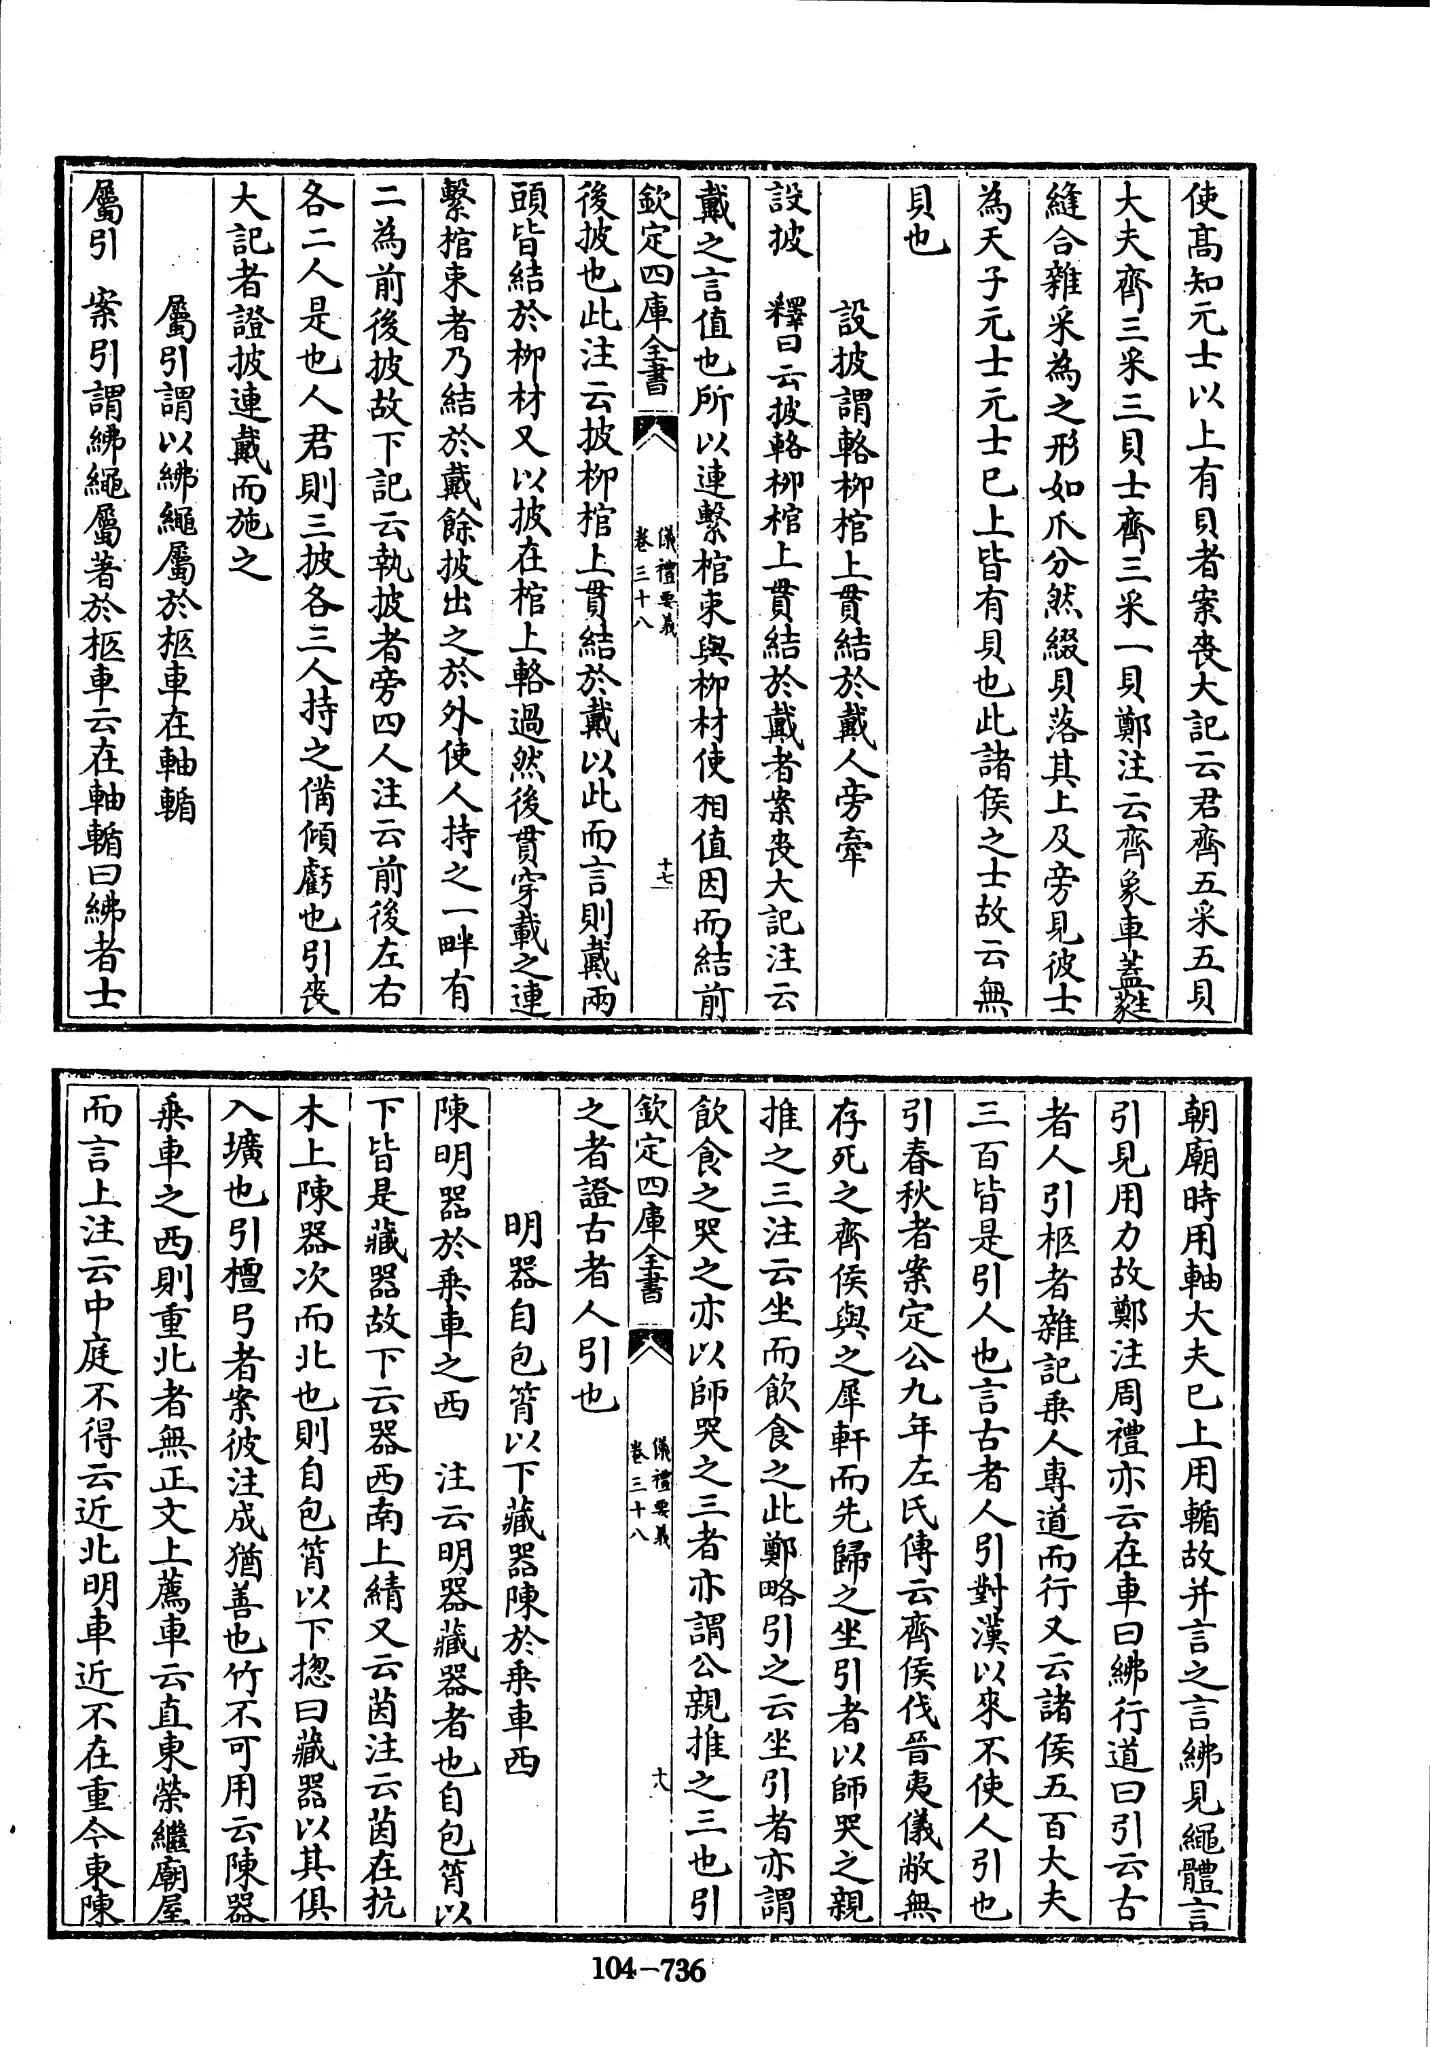 使髙知元士以上有貝者案喪大記云君齊五采五貝
大夫齊三采三貝士齊三采一貝鄭注云齊象車蓋蕤
縫合雜采為之形如爪分然綴貝落其上及旁見彼士
為天子元士元士已上皆有貝也此諸侯之士故云無
貝也
設披謂輅栁棺上貫結於戴人旁牽
設披 釋曰云披輅栁棺上貫結於戴者案喪大記注云
戴之言值也所以連繫棺束與栁材使相值因而結前
欽定四庫全書
儀禮要義
卷三十八
十七
後披也此注云披栁棺上貫結於戴以此而言則戴兩
頭皆結於栁材又以披在棺上輅過然後貫穿戴之連
繫棺束者乃結於戴餘披出之於外使人持之一畔有
二為前後披故下記云執披者旁四人注云前後左右
各二人是也人君則三披各三人持之備傾虧也引喪
大記者證披連戴而施之
屬引謂以紼繩屬於柩車在軸輴
屬引 案引謂紼繩屬著於柩車云在軸輴曰紼者士
朝廟時用軸大夫已上用輴故并言之言紼見繩體言
引見用力故鄭注周禮亦云在車曰紼行道曰引云古
者人引柩者雜記乗人專道而行又云諸侯五百大夫
三百皆是引人也言古者人引對漢以來不使人引也
引春秋者案定公九年左氏傳云齊侯伐晉夷儀敝無
存死之齊侯與之犀軒而先歸之坐引者以師哭之親
推之三注云坐而飲食之此鄭略引之云坐引者亦謂
飲食之哭之亦以師哭之三者亦謂公親推之三也引
欽定四庫全書
儀禮要義
卷三十八
十八
之者證古者人引也
明器自包筲以下藏器陳於乗車西
陳明器於乗車之西 注云明器藏器者也自包筲以
下皆是藏器故下云器西南上綪又云茵注云茵在抗
木上陳器次而北也則自包筲以下揔曰藏器以其俱
入壙也引檀弓者案彼注成猶善也竹不可用云陳器
乗車之西則重北者無正文上薦車云直東榮繼廟屋
而言上注云中庭不得云近北明車近不在重今東陳
104-736